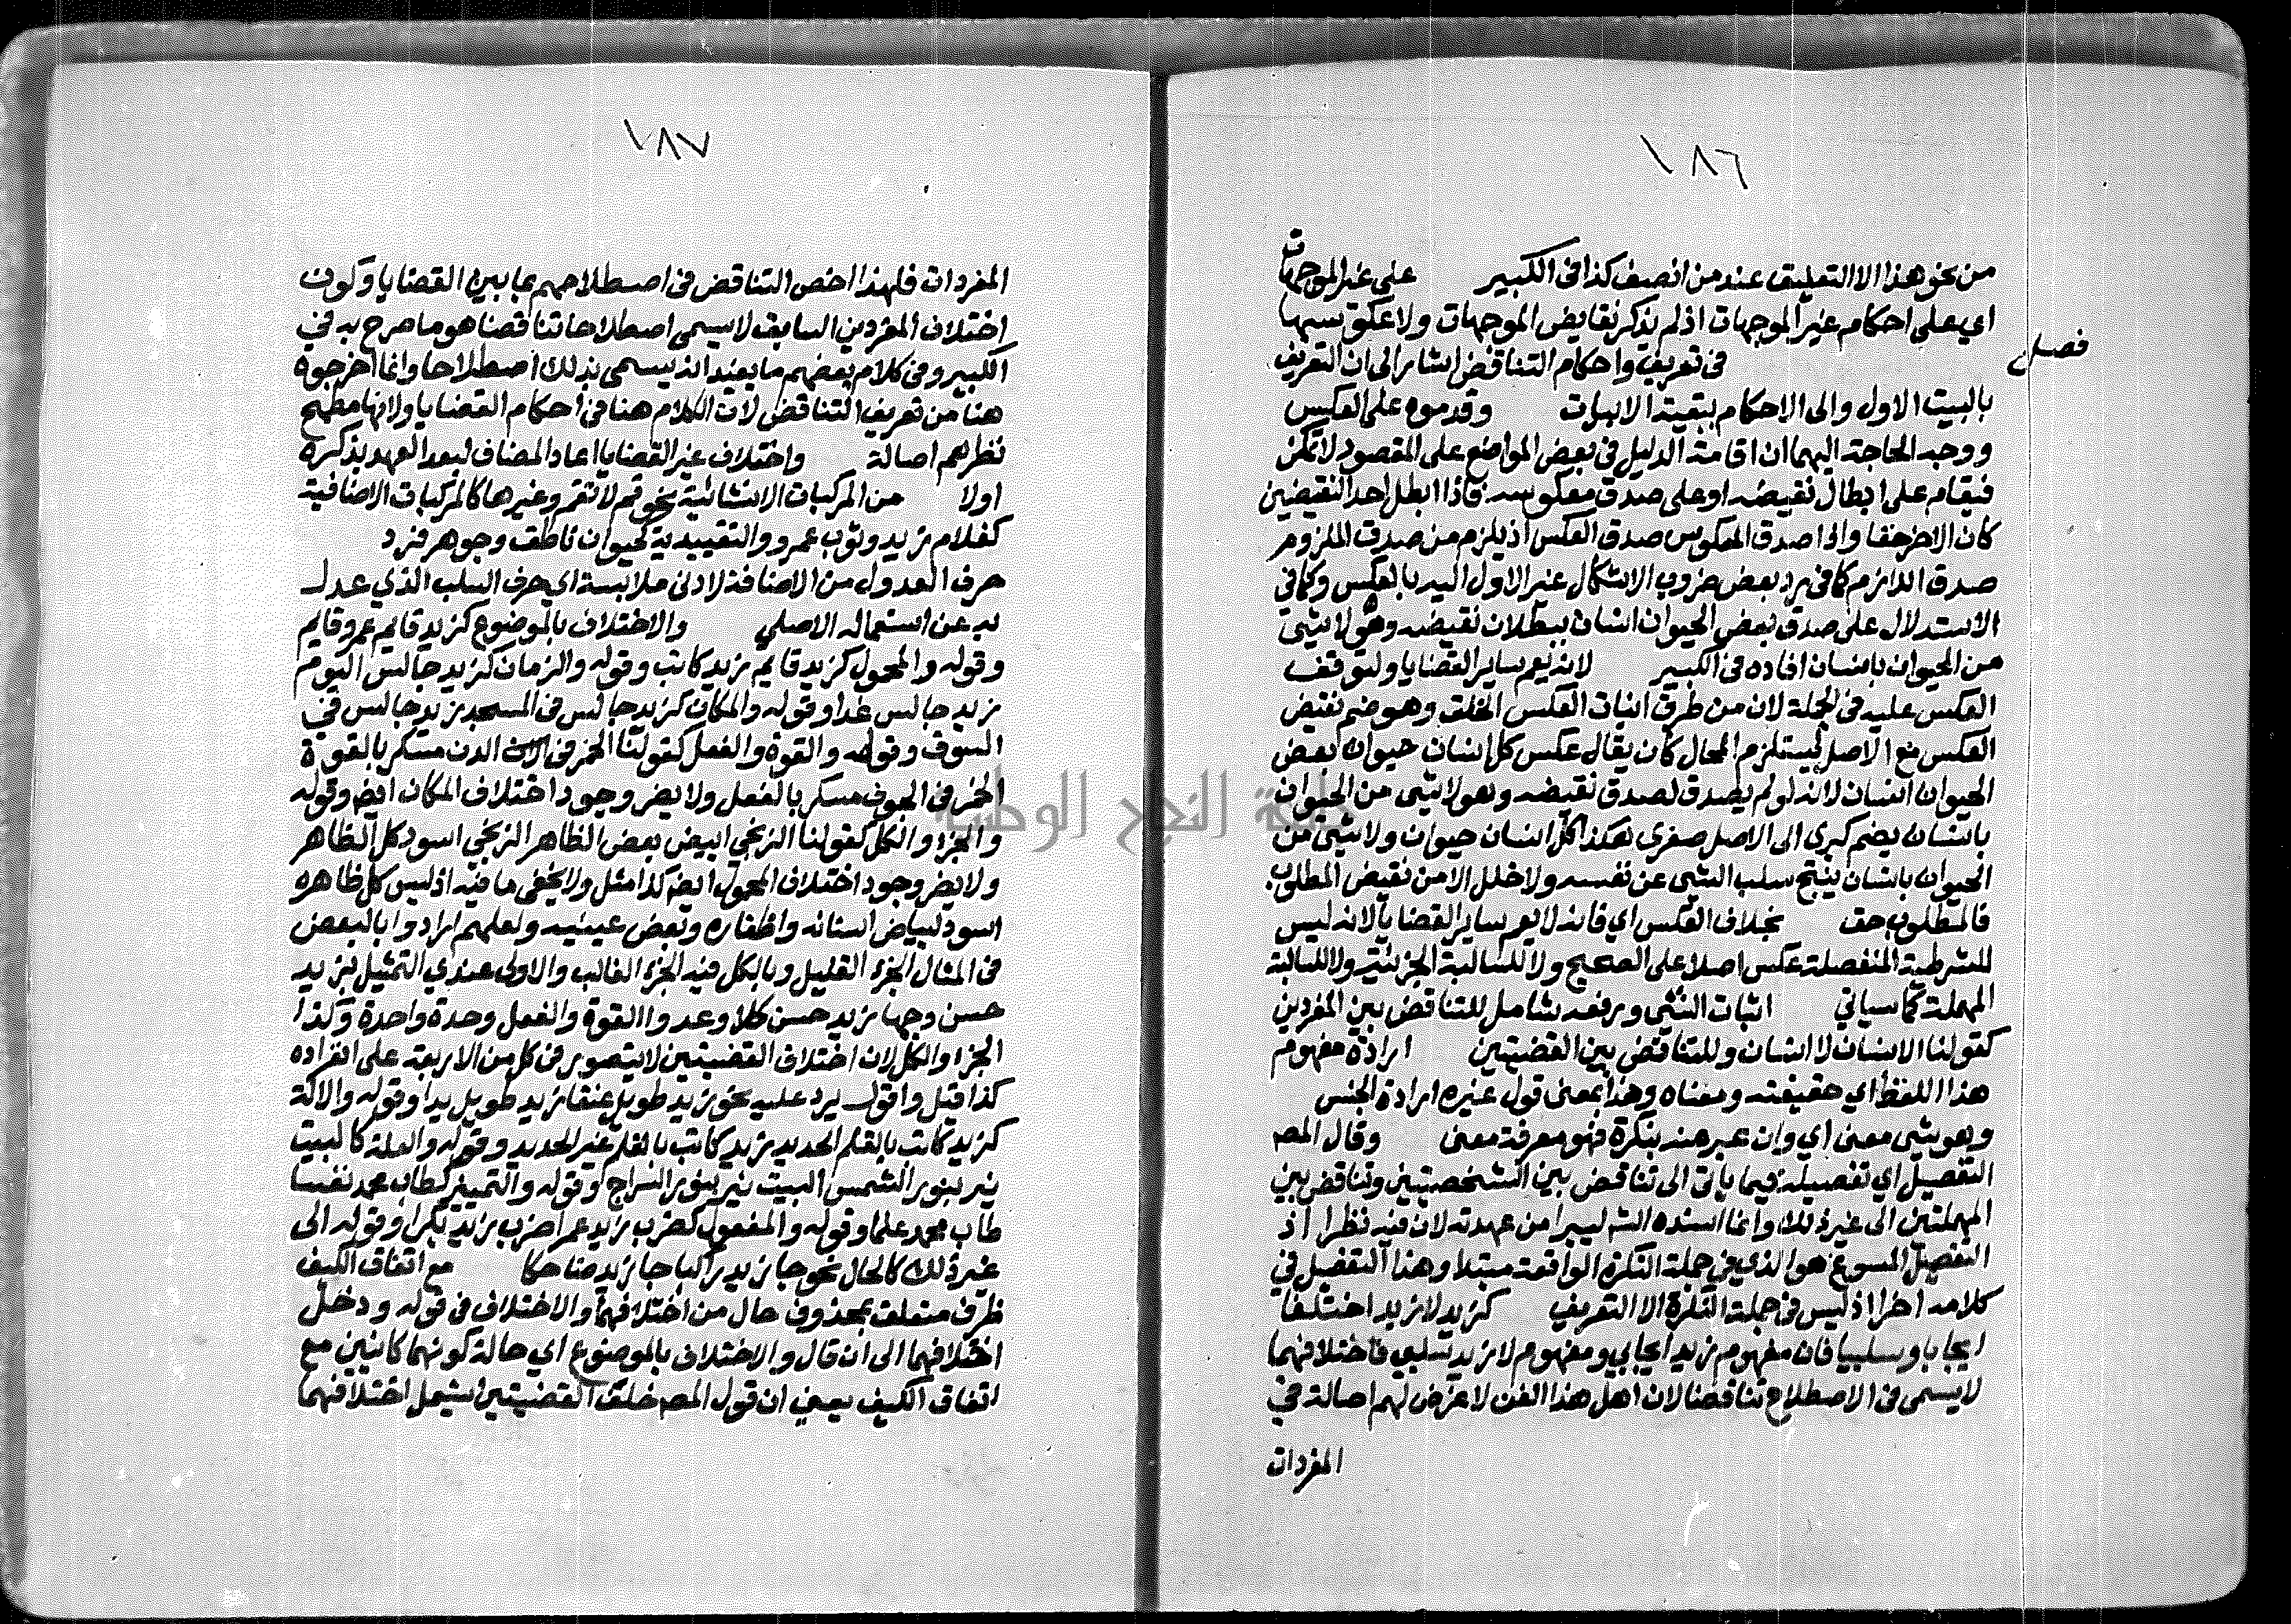 ١٨٦
من نحو هذا الا التعليق عند من انصف كذا في الكبير على غير الموجهات
اي على احكام غير الموجهات اذ لم يذكر نقايض الموجهات ولا عكوسها
فصل
في تعريف واحكام التناقض اشار الى ان التعريف
بالبيت الاول والى الاحكام ببقية الابيات وقدموه على العكس
ووجه الحاجة اليهما ان اقامة الدليل في بعض المواضع على المقصود لا تمكن
فيقام على ابطال نقيضه او على صدق معكوسه فاذا ابطل احد النقيضين
كان الاخر حقا واذا صدق المعكوس صدق العكس اذ يلزم من صدق الملزوم
صدق اللازم كما في رد بعض ضروب الاشكال غير الاول اليه بالعكس وكما في
الاستدلال على صدق بعض الحيوان انسان ببطلان نقيضه وهو لا شيئ
من الحيوان بانسان افاده في الكبير لانه يعم ساير القضايا وليتوقف
العكس عليه في الجملة لان من طرق اثبات العكس الخلف وهو ضم نقيض
العكس مع الاصل ليستلزم المحال كأن يقال عكس كل انسان حيوان بعض
الحيوان انسان لانه لو لم يصدق لصدق نقيضه وهو لا شيئ من الحيوان
بانسان يضم كبرى الى الاصل صغرى هكذا كل انسان حيوان ولا شيئ من
الحيوان بانسان ينتج سلب الشي عن نفسه ولا خلل الا من نقيض المطلوب
فالمطلوب حق بخلاف العكس اي فانه لا يعم ساير القضايا لانه ليس
للشرطية المنفصلة عكس اصلا على الصحيح ولا للسالبة الجزئية ولا للسالبة
المهملة كما سياتي اثبات الشي ورفعه شامل للتناقض بين المفردين
كقولنا الانسان لا انسان وللتناقض بين القضيتين ارادة مفهوم
هذا اللفظ اي حقيقته ومعناه وهذا بمعنى قول غيره ارادة الجنس
وهو شي معنى اي وان عبر عنه بنكرة فهو معرفة معنى وقال المص
التفصيل اي تفصيله فيما ياتي الى تناقض بين الشخصيتين وتناقض بين
المهملتين الى غير ذلك وانما اسنده الش ليبرا من عهدته لان فيه نظرا اذ
التفصيل المسوغ هو الذي في جملة النكرة الواقعة مبتدا وهذا التفصيل في
كلامه اخرا اذ ليس في جملة النكرة الا التعريف كزيد لا زيد اختلفا
ايجابا وسلبا فان مفهوم زيد ايجابي ومفهوم لا زيد سلبي فاختلافهما
لا يسمى في الاصطلاح تناقضا لان اهل هذا الفن لا غرض لهم اصالة في
المفردات
١٨٧
المفردات فلهذا اختص التناقض في اصطلاحهم بما بين القضايا وكون
اختلاف المفردين السابق لا يسمى اصطلاحا تناقضا هو ما صرح به في
الكبير وفي كلام بعضهم ما يفيد انه يسمى بذلك اصطلاحا وانما اخرجوه
هنا من تعريف التناقض لان الكلام هنا في احكام القضايا ولانها مطمح
نظرهم اصالة واختلاف غير القضايا اعاد المضاف لبعد العهد بذكره
اولا من المركبات الانشائية نحو قم لا تقم وغيرها كالمركبات الاضافية
كغلام زيد وثوب عمرو والتقييدية كحيوان ناطق وجوهر فرد
حرف العدول من الاضافة لادنى ملابسة اي حرف السلب الذي عدل
به عن استعماله الاصلي والاختلاف بالموضوع كزيد قايم عمرو قايم
وقوله والمحمول كزيد قايم زيد كاتب وقوله والزمان كزيد جالس اليوم
زيد جالس غدا وقوله والمكان كزيد جالس في المسجد زيد جالس في
السوق وقوله والقوة والفعل كقولنا الخمر في الدن مسكر بالقوة
الخمر في الجوف مسكر بالفعل ولا يضر وجود اختلاف المكان ايض وقوله
والجزء والكل كقولنا الزنجي ابيض بعض الظاهر الزنجي اسود كل الظاهر
ولا يضر وجود اختلاف المحمول ايض كذا مثل ولا يخفى ما فيه اذ ليس كل ظاهره
اسود لبياض اسنانه واظفاره وبعض عينيه ولعلهم ارادوا بالبعض
في المثال الجزء القليل وبالكل فيه الجزء الغالب والاولى عندي التمثيل بزيد
حسن وجها زيد حسن كلا وعدوا القوة والفعل وحدة واحدة وكذا
الجزء والكل لان اختلاف القضيتين لا يتصور في كل من الاربعة على انفراده
كذا قيل واقول يرد عليه نحو زيد طويل عنقا زيد طويل يدا وقوله والالة
كزيد كاتب بالقلم الحديد زيد كاتب بالقلم غير الحديد وقوله والعلة كالبيت
نير بنور الشمس البيت نير بنور السراج وقوله والتمييز كطاب محمد نفسا
طاب محمد علما وقوله والمفعول كضرب زيد عمرا ضرب زيد بكرا وقوله الى
غير ذلك كالحال نحو جا زيد راكبا جا زيد ضاحكا مع اتفاق الكيف
ظرف متعلق بمحذوف حال من اختلافهما والاختلاف في قوله ودخل
اختلافهما الى ان قال والاختلاف بالموضوع اي حالة كونهما كائنين مع
اتفاق الكيف يعني ان قول المص خلف القضيتين يشمل اختلافهما
جامعة النجاح الوطنية